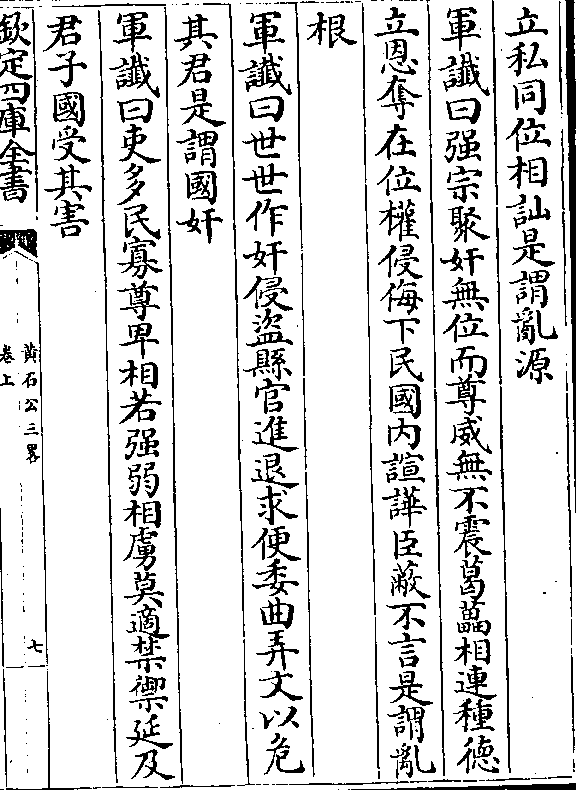 立私同位相訕是謂亂源
軍讖曰强宗聚奸無位而尊威無不震葛藟相連種徳
立恩奪在位權侵侮下民國内諠譁臣蔽不言是謂亂
根
軍讖曰世世作奸侵盜縣官進退求便委曲弄文以危
其君是謂國奸
軍讖曰吏多民寡尊卑相若强弱相虜莫適禁禦延及
君子國受其害
欽定四庫全書
黄石公三畧
卷上
七